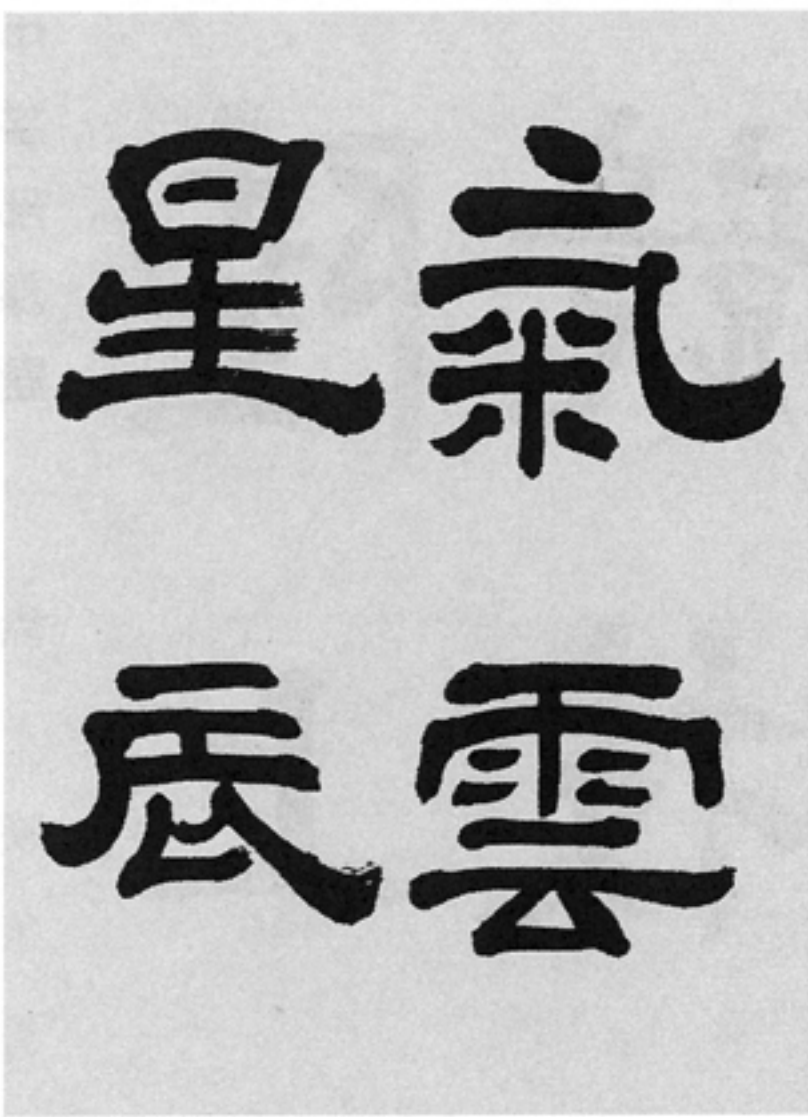 氣雲
星辰